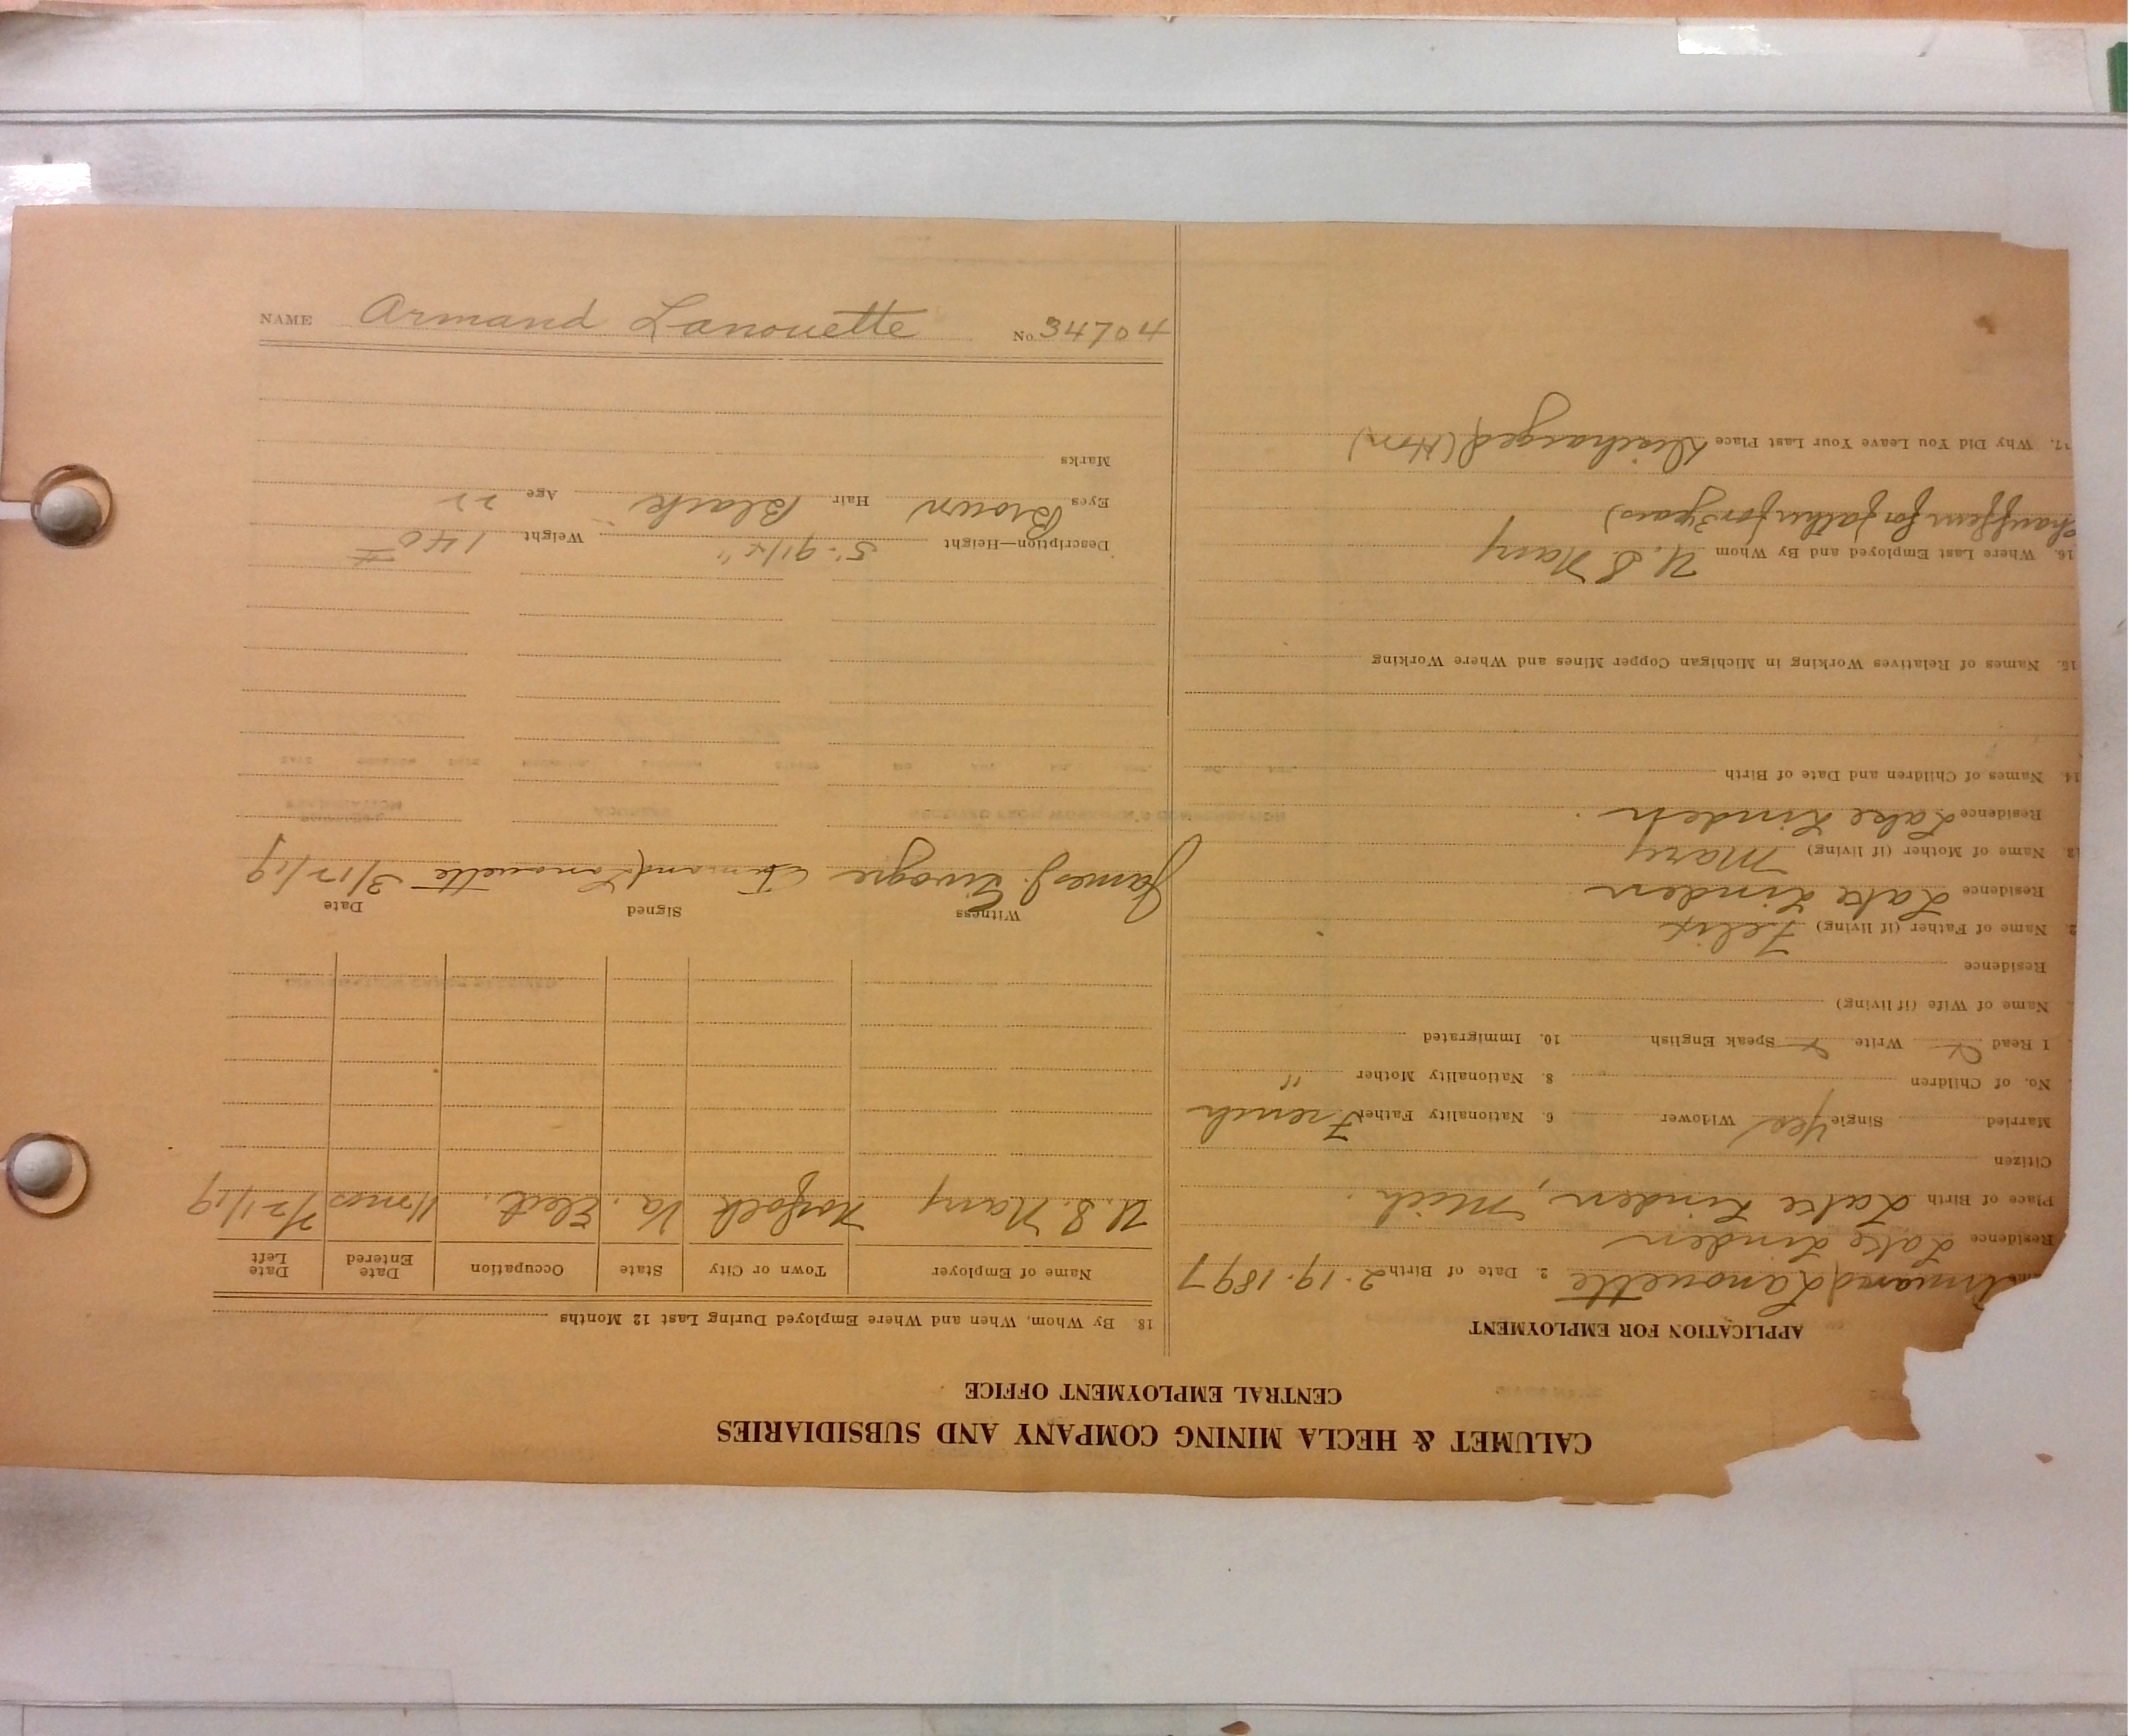 CALUMET & HECLA MINING COMPANY AND SUBSIDIARIES
CENTRAL EMPLOYMENT OFFICE
APPLICATION FOR EMPLOYMENT
Armand Lanouette 2. Date of Birth 2.19.1897
Residence Lake Linden
Place of Birth Lake Linden, Mich.
Citizen
Married Single Yes Widower 6. Nationality Father French
No. of Children 8. Nationality Mother "
I Read Write Speak English 10. Immigrated
Name of Wife (if living)
Residence
2. Name of Father (if living) Felix
Residence Lake Linden
13. Name of Mother (if living) Mary
Residence Lake Linden
14. Names of Children and Date of Birth
15. Names of Relatives Working in Michigan Copper Mines and Where Working
16. Where Last Employed and By Whom U.S Navy
chauffeur for father for 3 years)
17. Why Did You Leave Your Last Place Discharged (Hon)
18. By Whom, When and Where Employed During Last 12 Months
Name of Employer Town or City State Occupation Date Entered Date Left
U.S. Navy Norfolk Va. Elect. 11 mos 7/21/19
Witness Signed Date
James J. Armand Lanouette 3/17/19
Description—Height 5'. 9 1/2" Weight 140 #
Eyes Brown Hair Black Age 22
Marks
NAME Armand Lanouette No. 34704